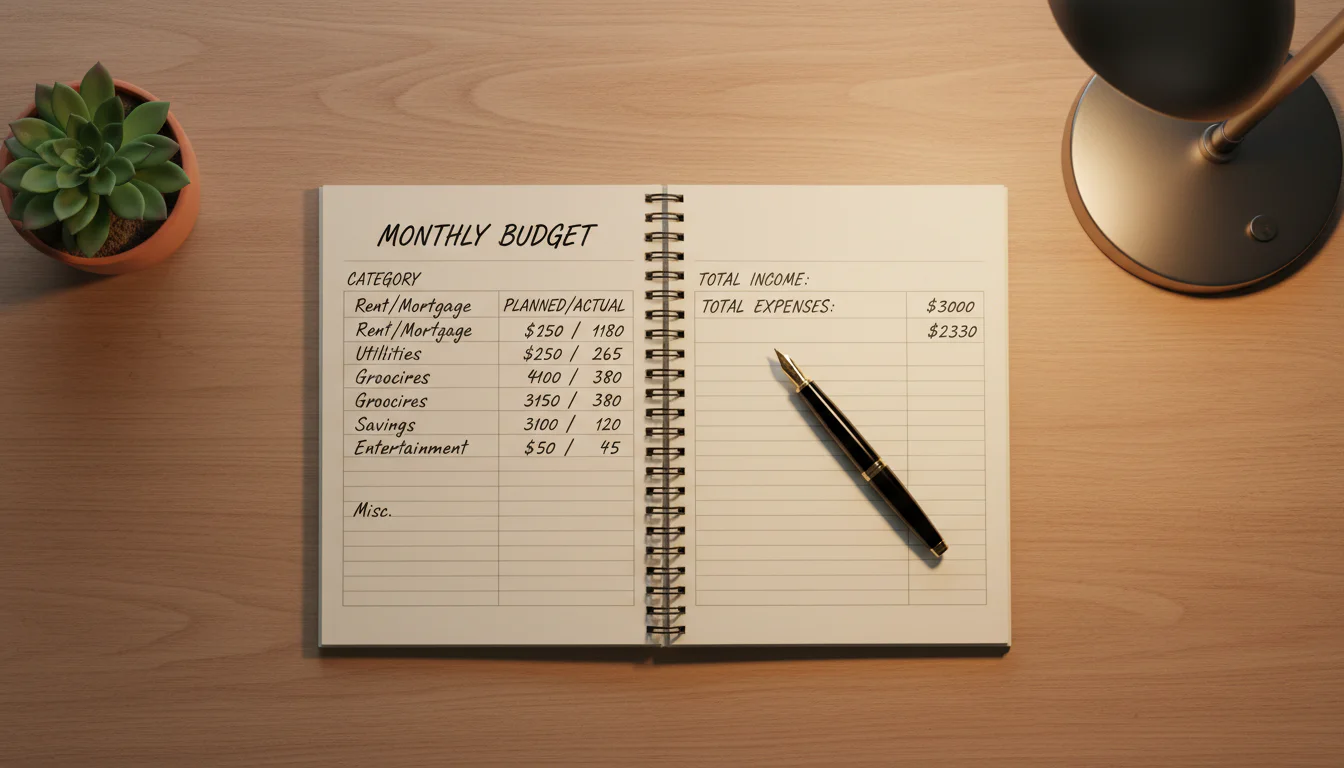 MONTHLY BUDGET
CATEGORY
Rent/Mortgage PLANNED/ACTUAL
Rent/Mortgage $250 / 1180
Utilities $250 / 265
Groocires 4100 / 380
Groocires 3150 / 380
Savings 3100 / 120
Entertainment $50 / 45
Misc.
TOTAL INCOME:
TOTAL EXPENSES: $3000
$2330